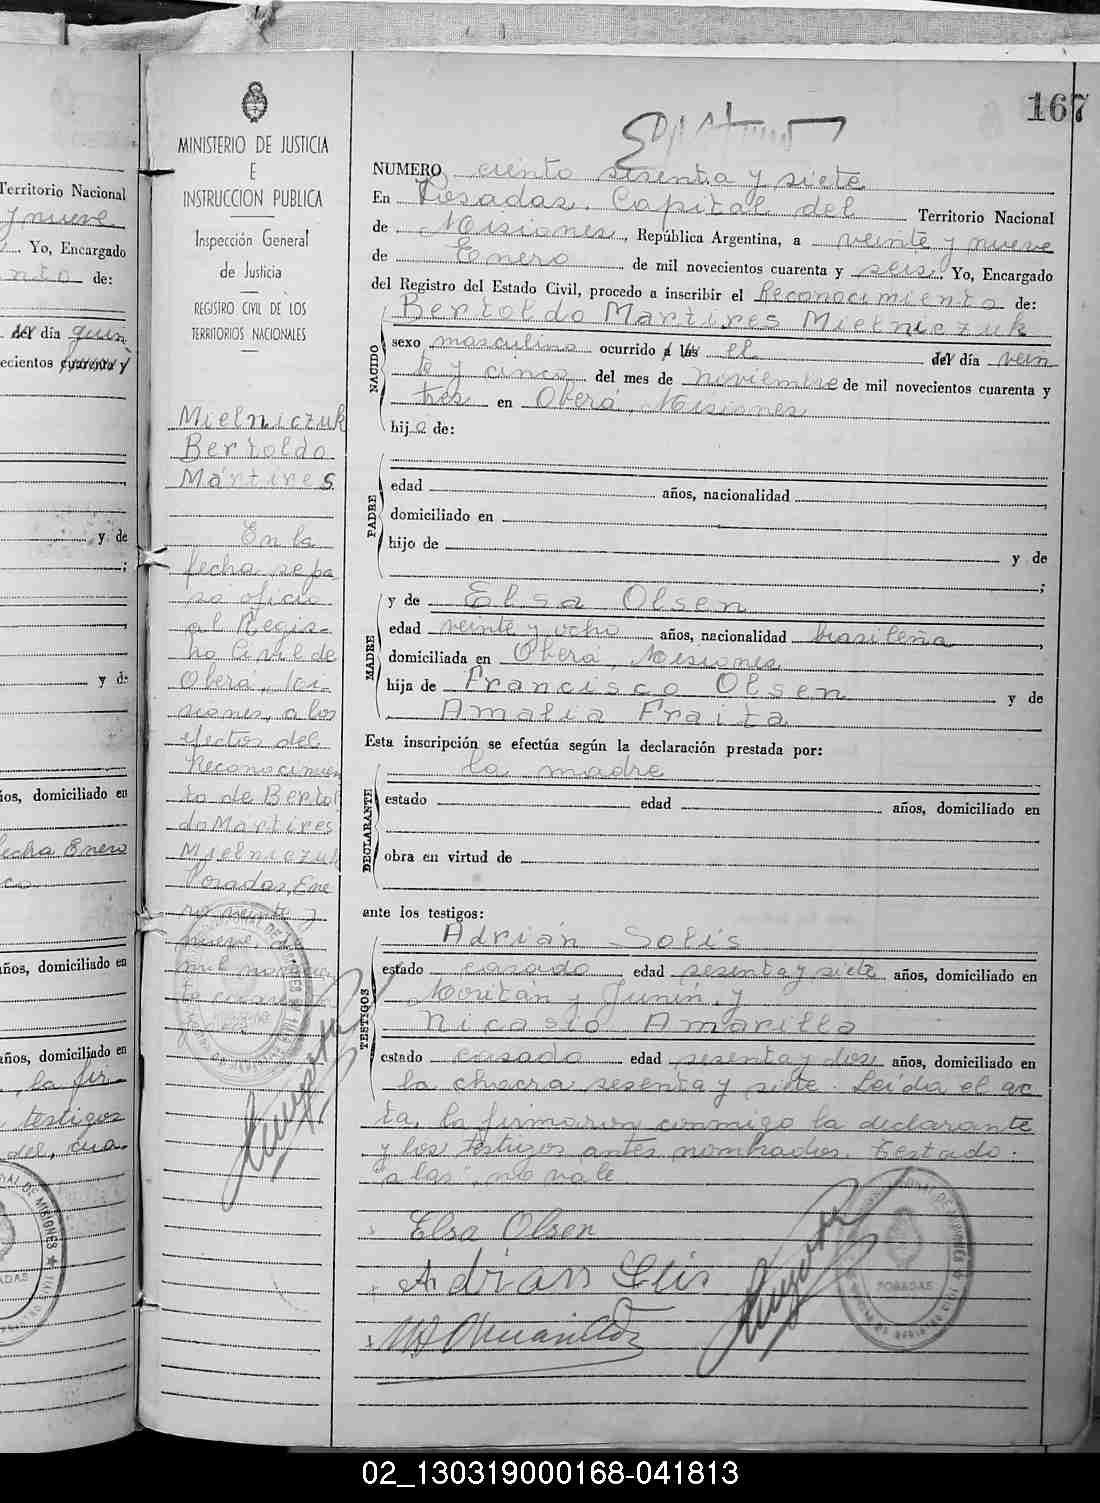 167
MINISTERIO DE JUSTICIA
E
INSTRUCCION PUBLICA
Inspección General
de Justicia
REGISTRO CIVIL DE LOS
TERRITORIOS NACIONALES
Mielniczuk
Bertoldo
Mártires
En la
fecha se pa
só oficio
al Regis-
tro Civil de
Oberá, Mi-
siones, a los
efectos del
Reconocimien
to de Bertol
do Martires
Mielniczuk
Posadas, Ene
ro veinte y
nueve, de
mil novecien
to cuaren
NUMERO ciento sesenta y siete
En Posadas, Capital del Territorio Nacional
de Misiones, República Argentina, a veinte y nueve
de Enero de mil novecientos cuarenta y seis. Yo, Encargado
del Registro del Estado Civil, procedo a inscribir el Reconocimiento de:
NACIDO
Bertoldo Martires Mielniczuk
sexo masculino ocurrido a las el del día vein
te y cinco del mes de noviembre de mil novecientos cuarenta y
tres en Oberá, Misiones
hijo de:
PADRE
edad años, nacionalidad
domiciliado en
hijo de y de
;
MADRE
y de Elsa Olsen
edad veinte y ocho años, nacionalidad brasileña,
domiciliada en Oberá, Misiones
hija de Francisco Olsen y de
Amalia Fraita
Esta inscripción se efectúa según la declaración prestada por:
DECLARANTE
la madre
estado edad años, domiciliado en
obra en virtud de
ante los testigos:
TESTIGOS
Adrián Solís
estado casado edad sesenta y siete años, domiciliado en
Moritán y Junín, y
Nicasio Amarilla
estado casado edad sesenta y dos años, domiciliado en
la chacra sesenta y siete. Leída el ac
ta, la firmaron conmigo la declarante
y los testigos antes nombrados. Testado:
"a las", no vale
Elsa Olsen
Adrian Solis
POSADAS
Territorio Nacional
y nueve
Yo, Encargado
de:
del día quin
ecientos cuarenta y
y de
;
y de
ios, domiciliado en
fecha Enero
años, domiciliado en
años, domiciliado en
la fir
testigos
02_130319000168-041813